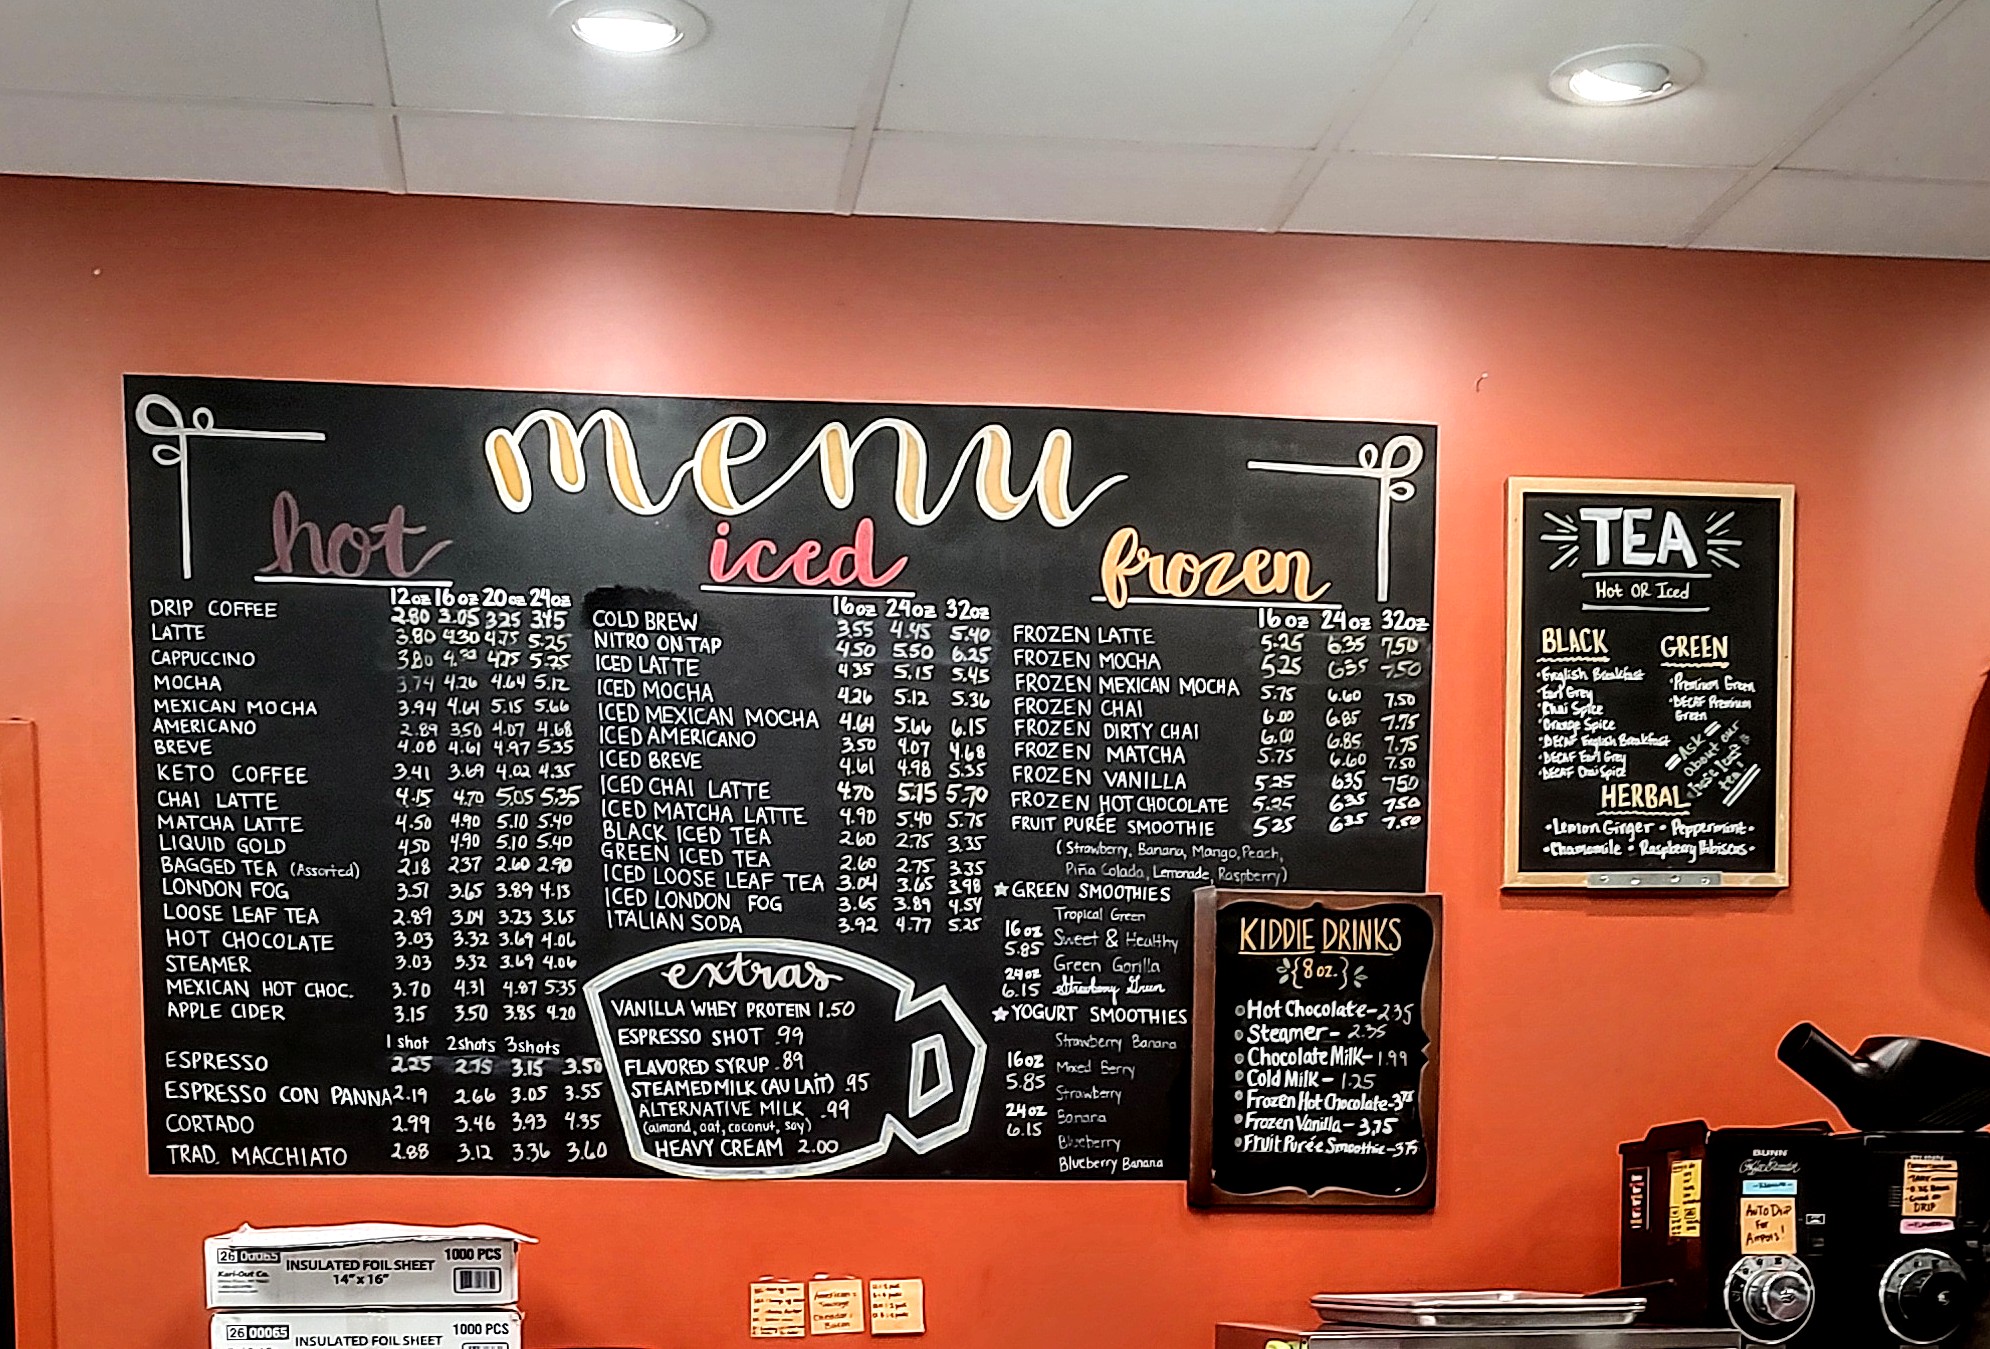 menu
hot
12oz 16oz 20oz 24oz
DRIP COFFEE 2.80 3.05 3.25 3.45
LATTE 3.80 4.30 4.75 5.25
CAPPUCCINO 3.80 4.30 4.75 5.25
MOCHA 3.74 4.26 4.64 5.12
MEXICAN MOCHA 3.94 4.64 5.15 5.66
AMERICANO 2.89 3.50 4.07 4.68
BREVE 4.08 4.61 4.97 5.35
KETO COFFEE 3.41 3.69 4.02 4.35
CHAI LATTE 4.15 4.70 5.05 5.35
MATCHA LATTE 4.50 4.90 5.10 5.40
LIQUID GOLD 4.50 4.90 5.10 5.40
BAGGED TEA (Assorted) 2.18 2.37 2.60 2.90
LONDON FOG 3.51 3.65 3.89 4.13
LOOSE LEAF TEA 2.89 3.04 3.23 3.65
HOT CHOCOLATE 3.03 3.32 3.69 4.06
STEAMER 3.03 3.32 3.69 4.06
MEXICAN HOT CHOC. 3.70 4.31 4.87 5.35
APPLE CIDER 3.15 3.50 3.85 4.20
1 shot 2shots 3shots
ESPRESSO 2.25 2.75 3.15 3.50
ESPRESSO CON PANNA 2.19 2.66 3.05 3.55
CORTADO 2.99 3.46 3.93 4.35
TRAD. MACCHIATO 2.88 3.12 3.36 3.60
iced
16oz 24oz 32oz
COLD BREW 3.55 4.45 5.40
NITRO ON TAP 4.50 5.50 6.25
ICED LATTE 4.35 5.15 5.45
ICED MOCHA 4.26 5.12 5.36
ICED MEXICAN MOCHA 4.64 5.66 6.15
ICED AMERICANO 3.50 4.07 4.68
ICED BREVE 4.61 4.98 5.35
ICED CHAI LATTE 4.70 5.15 5.70
ICED MATCHA LATTE 4.90 5.40 5.75
BLACK ICED TEA 2.60 2.75 3.35
GREEN ICED TEA 2.60 2.75 3.35
ICED LOOSE LEAF TEA 3.04 3.65 3.98
ICED LONDON FOG 3.65 3.89 4.54
ITALIAN SODA 3.92 4.77 5.25
extras
VANILLA WHEY PROTEIN 1.50
ESPRESSO SHOT .99
FLAVORED SYRUP .89
STEAMED MILK (AU LAIT) .95
ALTERNATIVE MILK .99
(almond, oat, coconut, soy)
HEAVY CREAM 2.00
frozen
16oz 24oz 32oz
FROZEN LATTE 5.25 6.35 7.50
FROZEN MOCHA 5.25 6.35 7.50
FROZEN MEXICAN MOCHA 5.75 6.60 7.50
FROZEN CHAI 6.00 6.85 7.75
FROZEN DIRTY CHAI 6.00 6.85 7.75
FROZEN MATCHA 5.75 6.60 7.50
FROZEN VANILLA 5.25 6.35 7.50
FROZEN HOT CHOCOLATE 5.25 6.35 7.50
FRUIT PURÉE SMOOTHIE 5.25 6.35 7.50
(Strawberry, Banana, Mango, Peach,
Piña Colada, Lemonade, Raspberry)
★GREEN SMOOTHIES
Tropical Green
16oz Sweet & Healthy
5.85
Green Gorilla
24oz
6.15 Strawberry Green
★YOGURT SMOOTHIES
Strawberry Banana
16oz Mixed Berry
5.85
Strawberry
24oz Banana
6.15
Blueberry
Blueberry Banana
KIDDIE DRINKS
{8oz.}
Hot Chocolate-2.35
Steamer- 2.35
Chocolate Milk-1.99
Cold Milk - 1.25
Frozen Hot Chocolate-3.75
Frozen Vanilla- 3.75
Fruit Purée Smoothie-3.75
TEA
Hot OR Iced
BLACK
•English Breakfast
•Earl Grey
•Chai Spice
•Orange Spice
•DECAF English Breakfast
•DECAF Earl Grey
•DECAF Chai Spice
GREEN
•Premium Green
•DECAF Premium
Green
Ask
about our
loose leaf
tea!
HERBAL
•Lemon Ginger • Peppermint•
•Chamomile • Raspberry Hibiscus•
26 00065 1000 PCS
Kari-Out Co. INSULATED FOIL SHEET
14"x16"
26 00065 1000 PCS
INSULATED FOIL SHEET
BUNN
AUTO Drip
For
Airpots!
DRIP